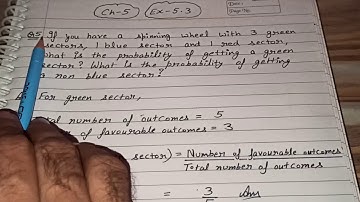 Ch-5 Ex-5.3
Date:
Page No.
Q.5 If you have a spinning wheel with 3 green
sectors, 1 blue sector and 1 red sector,
what is the probability of getting a green
sector? What is the probability of getting
a non blue sector?
For green sector,
Total number of outcomes = 5
of favourable outcomes = 3
sector) = Number of favourable outcomes
Total number of outcomes
= 3 Ans
5